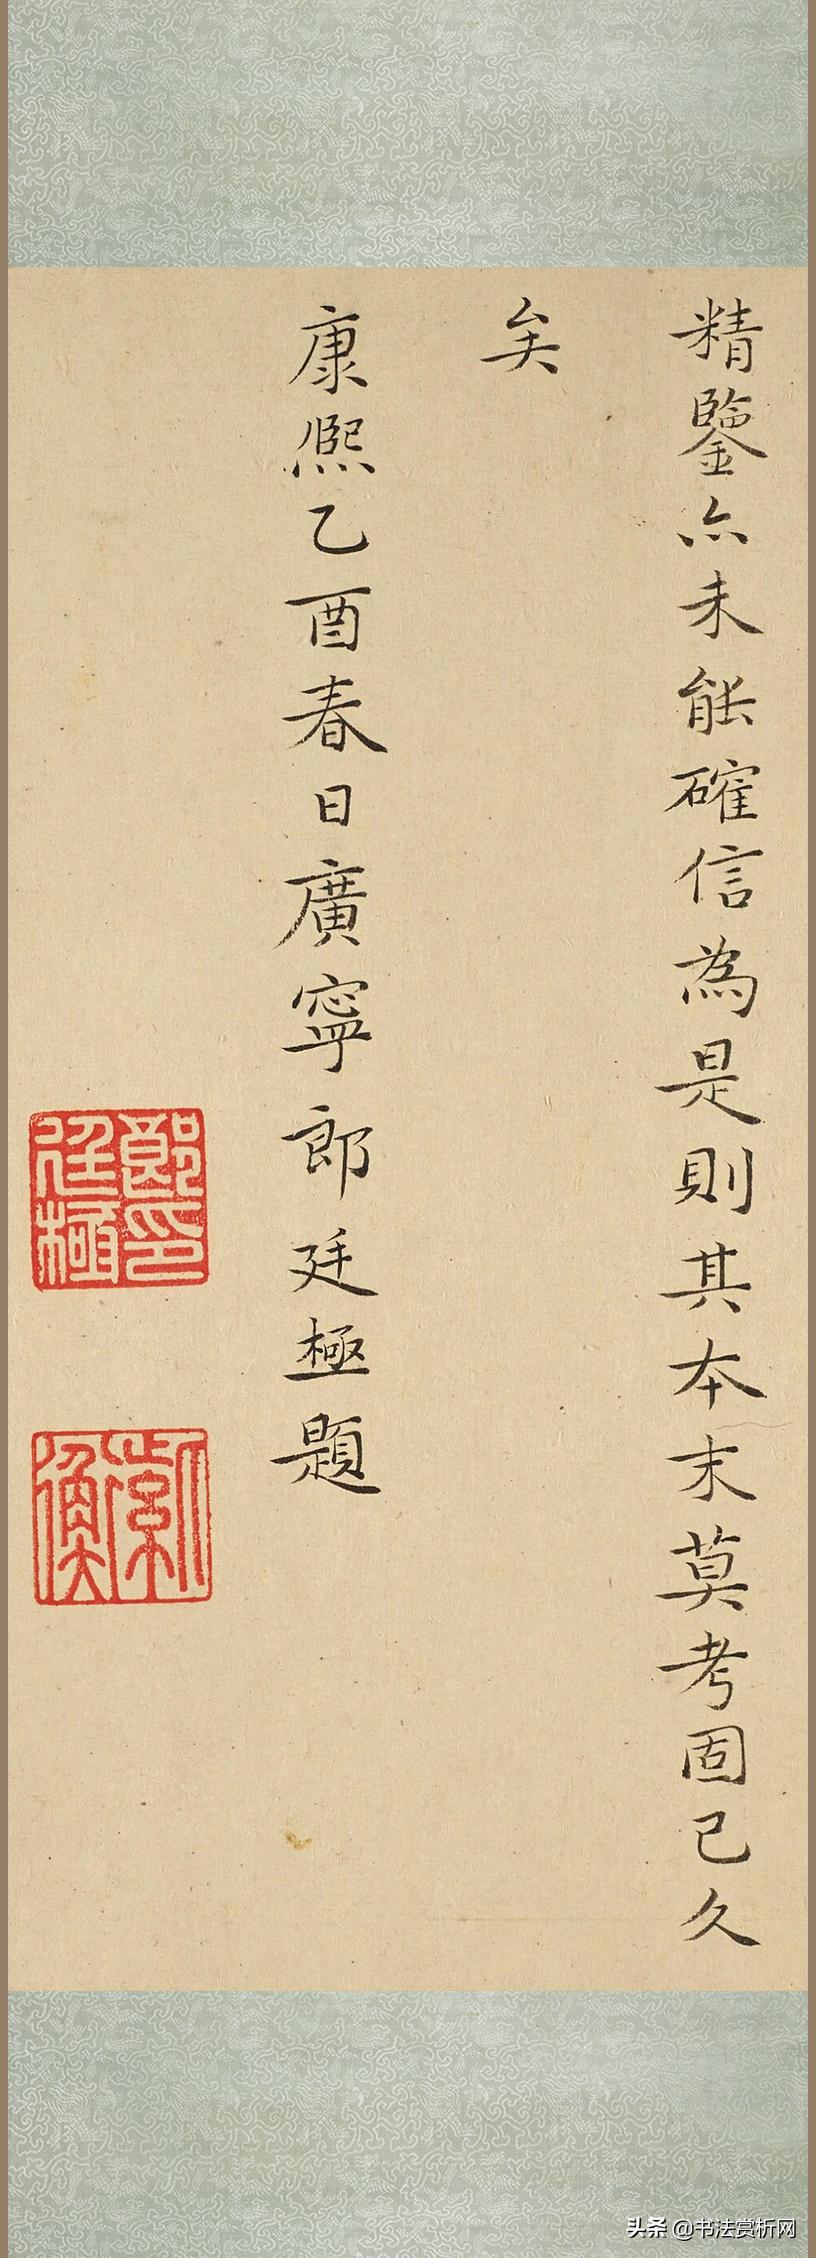 精鑒亦未能確信為是則其本末莫考固已久
矣
康熙乙酉春日廣寧郎廷極題
郎廷極印
紫衡
头条 @书法赏析网